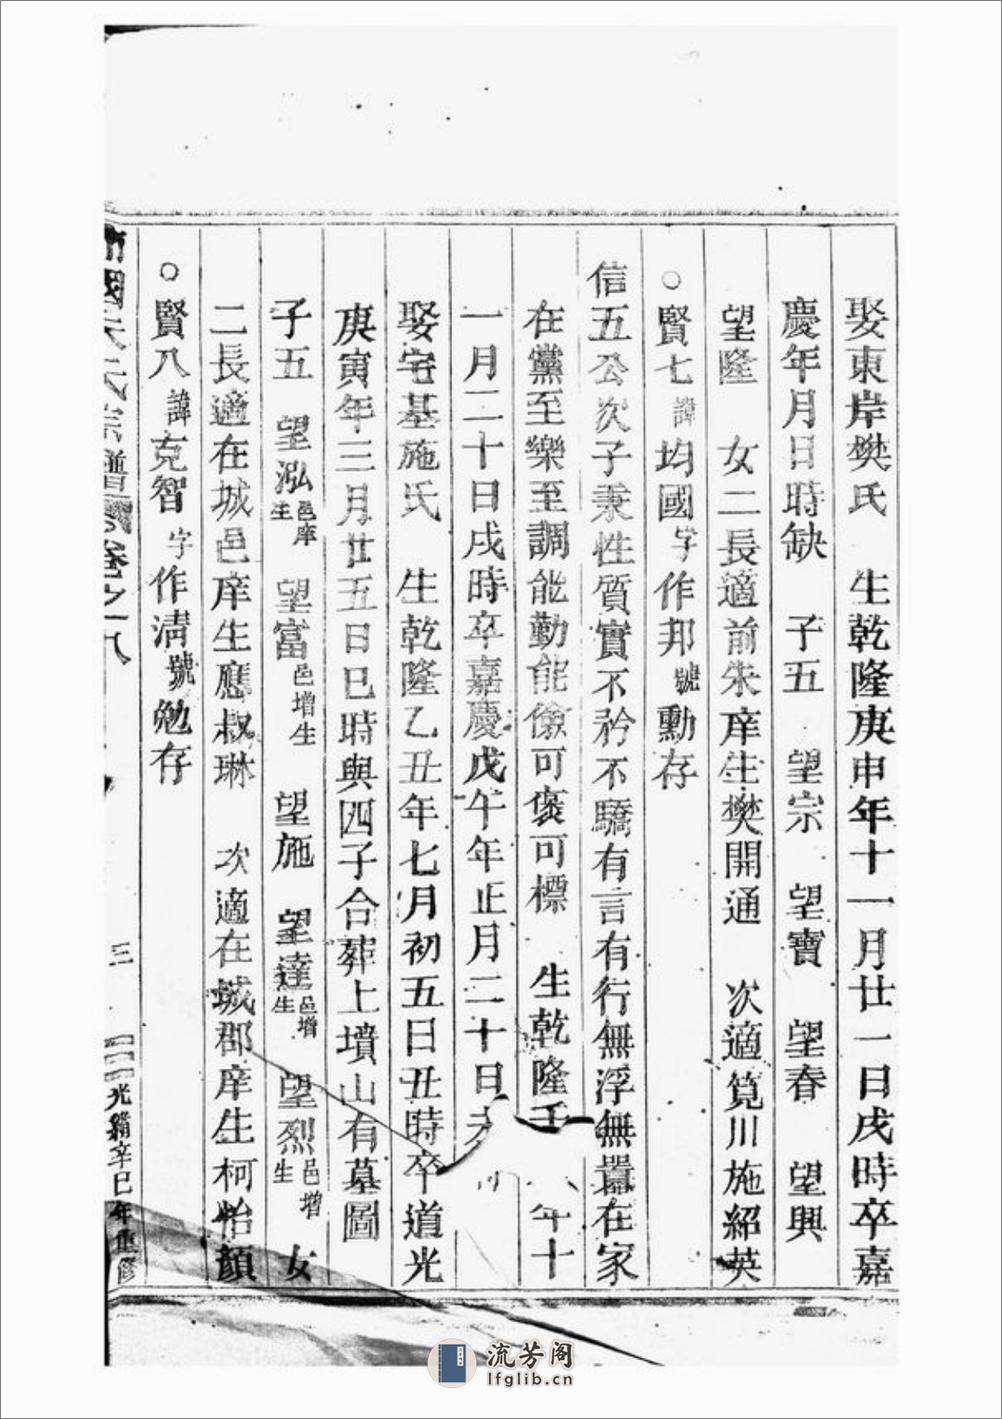 娶東岸樊氏　生乾隆庚申年十一月廿一日戌時卒嘉
慶年月日時缺　子五　望宗　望寶　望春　望興
望隆　女二長適前朱庠生樊開通　次適筧川施紹英
○賢七諱均國字作邦號勳存
信五公次子秉性質實不矜不驕有言有行無浮無囂在家
在黨至樂至調能勤能儉可褒可標　生乾隆壬　年十
一月二十日戌時卒嘉慶戊午年正月二十日
娶宅基施氏　生乾隆乙丑年七月初五日丑時卒道光
庚寅年三月廿五日巳時與四子合葬上墳山有墓圖
子五　望泓邑庠生　望富邑增生　望施　望達邑增生　望烈邑增生　女
二長適在城邑庠生應叔琳　次適在城郡庠生柯怡顏
○賢八諱克智字作淸號勉存
國朱氏宗譜 卷之八 三 光緒辛巳年重修
流芳阁
lfglib.cn